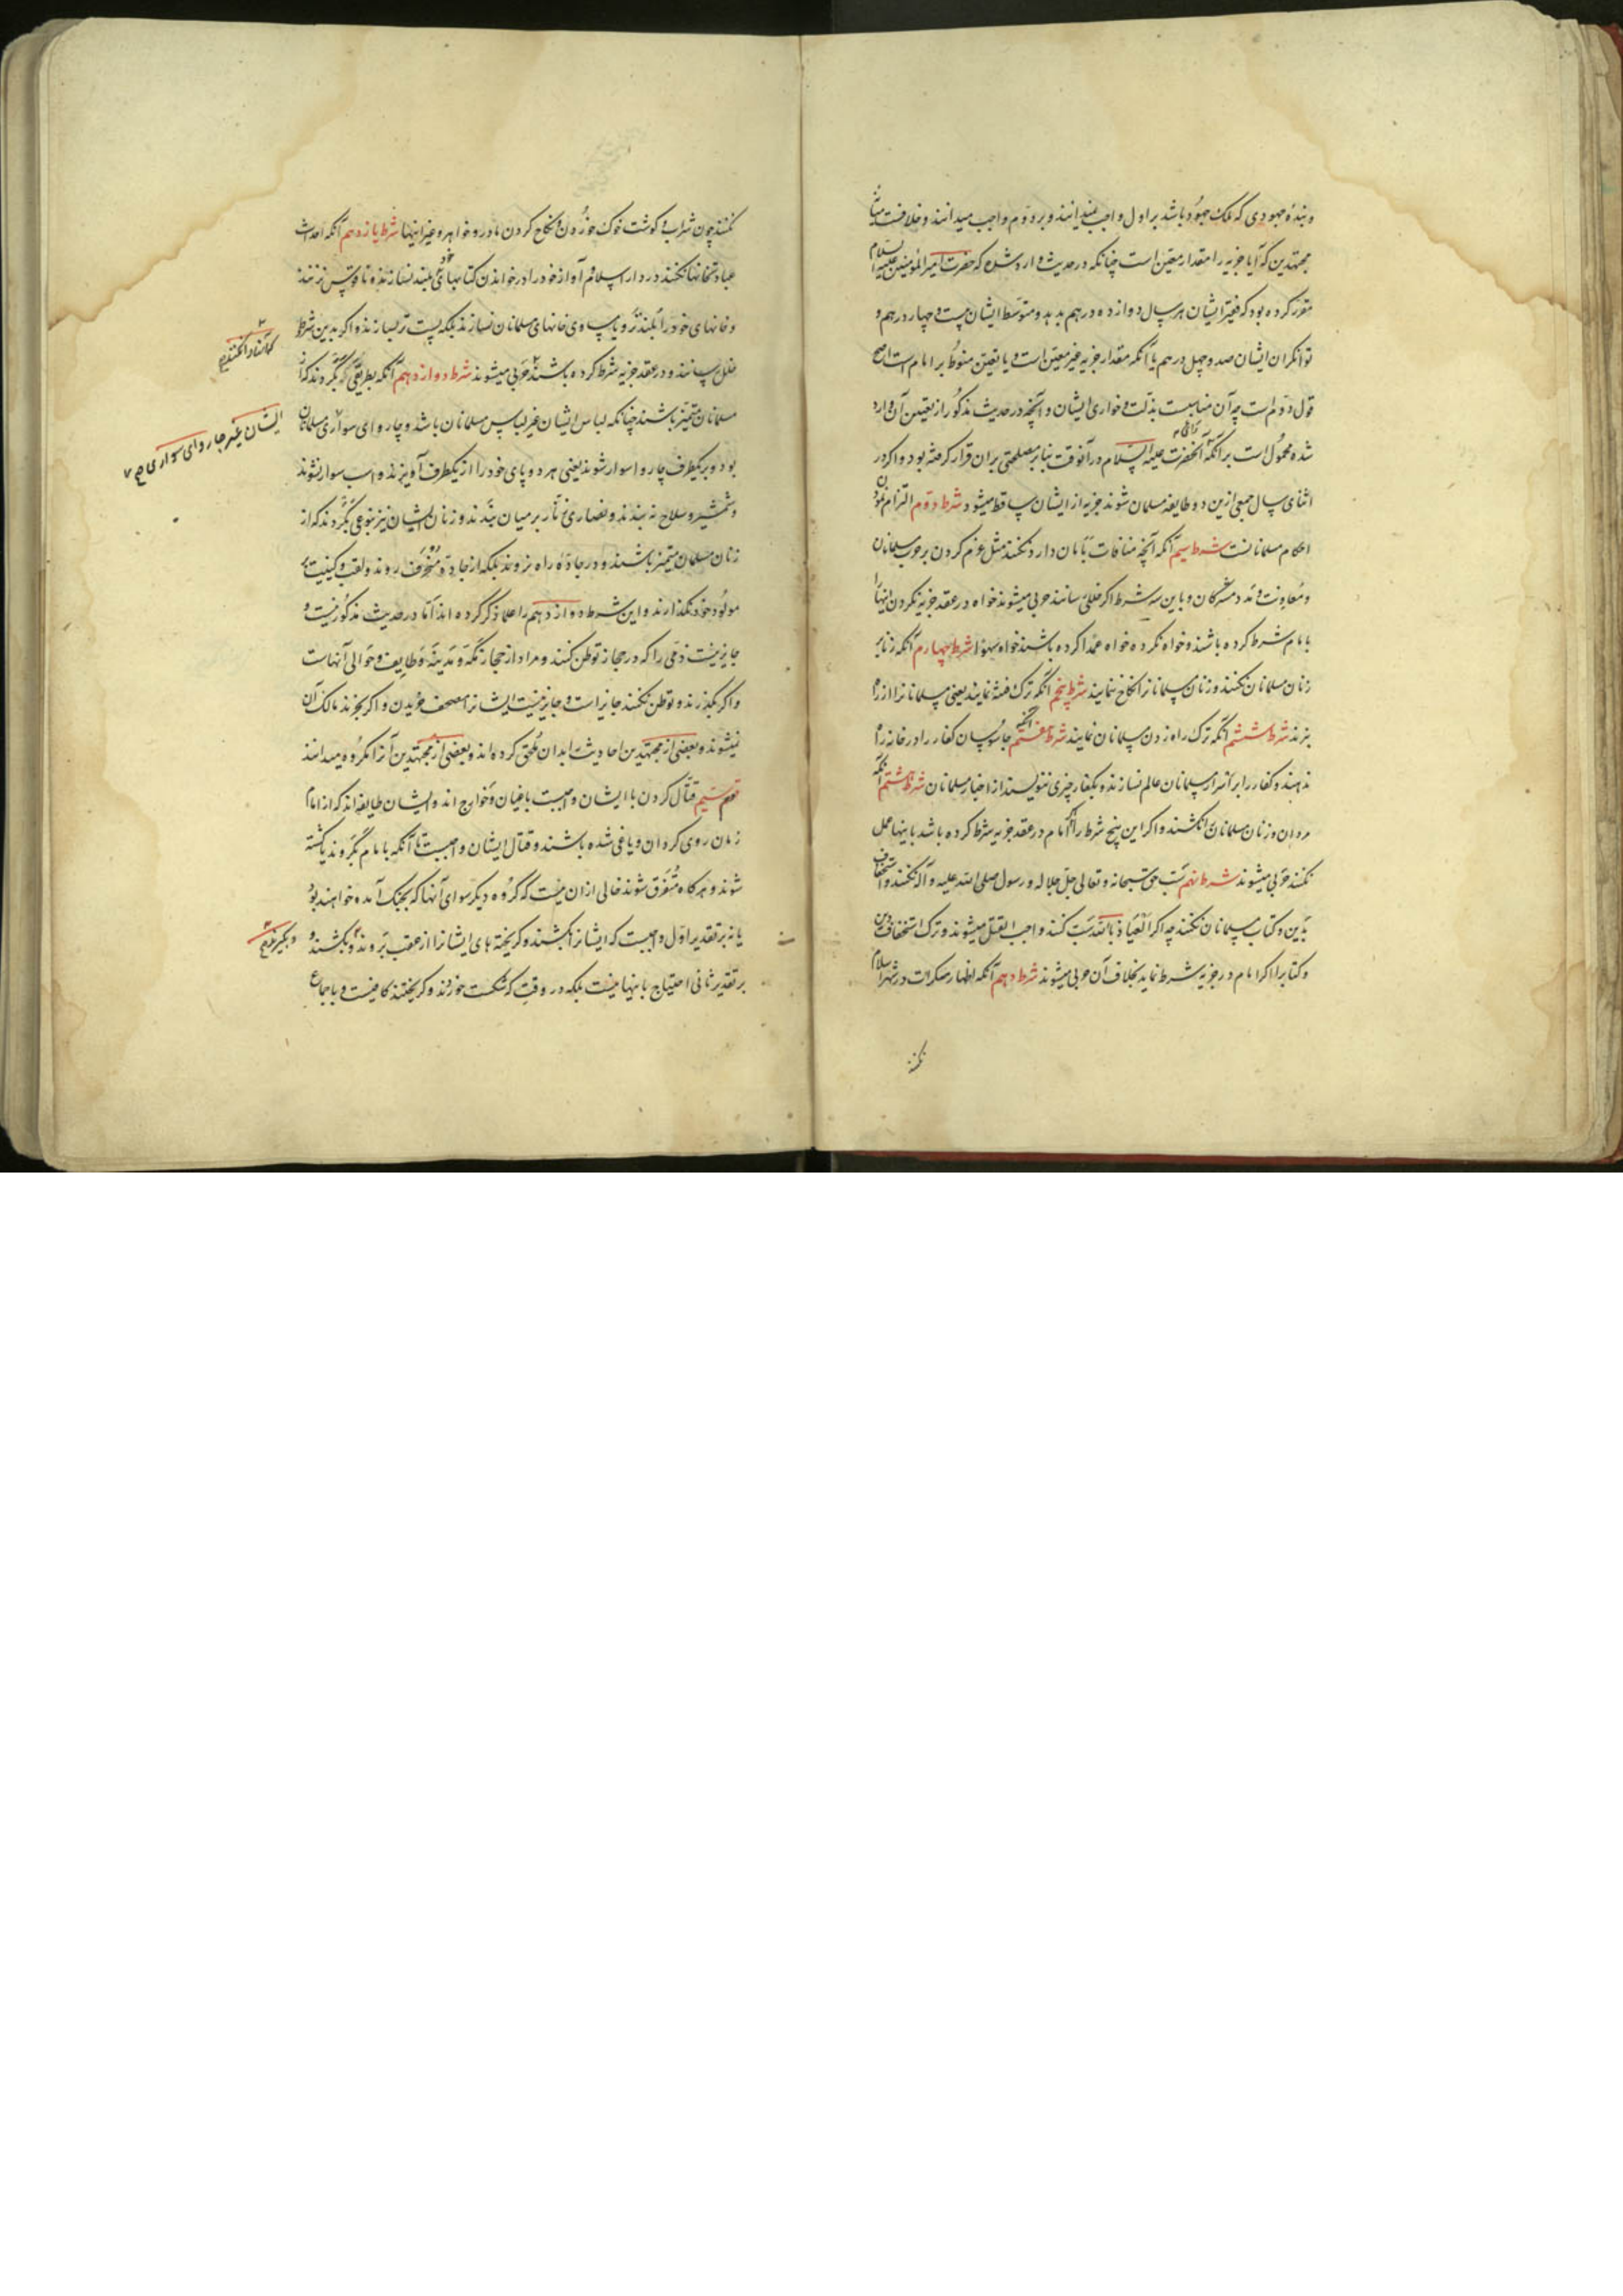 و بنده جهودی که ملک جهود باشد بر اول واجب نمیدانند و بر دوم واجب میدانند و خلافست میان
مجتهدین که آیا جزیه را مقدار معین است چنانکه در حدیث وارد شده که حضرت امیر المؤمنین علیه السلام
مقرر کرده بود که فقیر ایشان هر سال دوازده درهم بدهد و متوسط ایشان بیست و چهار درهم و
توانگران ایشان چهل درهم یا آنکه مقدار جزیه غیر معین است و یا تعیین منوط بر امام است اصح
قول دوم است چه آن مناسبست بذلت و خواری ایشان و آنچه در حدیث مذکور از تعیین آن وارد
شده محمول است بر آنکه آنحضرت علیه السلام در آنوقت بنا بر مصلحتی بر ان قرار گرفته بود و اگر در
اثنای سال جمعی ازین دو طایفه مسلمان شوند جزیه از ایشان ساقط میشود شرط دوم التزام نمودن
احکام مسلمانانست شرط سیم آنکه آنچه منافات بامان دارد نکنند مثل عزم کردن بر حرب مسلمانان
و معاونت و مدد مشرکان و باین سه شرط اگر خلل رسانند حربی میشوند خواه در عقد جزیه نکردن اینها را
بامام شرط کرده باشند و خواه نکرده خواه عمدا کرده باشند خواه سهوا شرط چهارم آنکه زنا با
زنان مسلمانان نکنند و زنان مسلمانانرا نکاح ننمایند شرط پنجم آنکه ترک فتنه نمایند یعنی مسلمانانرا از راه
نبرند شرط ششم آنکه ترک راه زدن مسلمانان نمایند شرط هفتم آنکه جاسوسان کفار را در خانه راه
ندهند و کفار را بر اسرار مسلمانان عالم نسازند و بکفار چیزی ننویسند از اخبار مسلمانان شرط هشتم آنکه
مردان و زنان مسلمانانرا نکشند و اگر این پنج شرط را امام در عقد جزیه شرط کرده باشد باینها عمل
نکنند حربی میشوند شرط نهم سب حق سبحانه و تعالی جل جلاله و رسول صلی الله علیه و آله نکنند و استخفاف
بدین و کتاب مسلمانان نکنند چه اگر العیاذ بالله سب کنند واجب القتل میشوند و ترک استخفاف دین
و کتابرا اگر امام در جزیه شرط نماید بخلاف آن حربی میشوند شرط دهم آنکه اظهار منکرات در شهر اسلام
نکنند
نکنند چون شراب و گوشت خوک خوردن و نکاح کردن مادر و خواهر و غیر اینها شرط یازدهم آنکه احداث
عبادتخانها نکنند در دار اسلام و آواز خود را در خواندن کتابهای خود بلند نسازند و ناقوس نزنند
و خانهای خود را بلندتر و یا مساوی خانهای مسلمانان نسازند بلکه پست تر بسازند و اگر بدین شرط
خلل رسانند و در عقد جزیه شرط کرده باشند حربی میشوند شرط دوازدهم آنکه بطریقی بگردند که از
مسلمانان متمیز باشند چنانکه لباس ایشان غیر لباس مسلمانان باشد و چاروای سواری مسلمانان
بود و بر یکطرف چاروا سوار شوند یعنی هر دو پای خود را از یکطرف آویزند و اسب سوار نشوند
و شمشیر و سلاح نه بندند و نصاری زنار بر میان بندند و زنان ایشان نیز بنوعی بگردند که از
زنان مسلمان متمیز باشند و در جاده راه نروند بلکه از جاده منحرف روند و لقب و کنیت بر
مولود خود نگذارند و این شرط دوازدهم را علما ذکر کرده اند اما در حدیث مذکور نیست و
جایز نیست ذمی را که در حجاز توطن کنند و مراد از حجاز مکه و مدینه و طایف و حوالی آنهاست
و اگر بگذرند و توطن نکنند جایز است و جایز نیست ایشانرا مصحف خریدن و اگر بخرند مالک آن
نمیشوند و بعضی از مجتهدین احادیث را بدان ملحق کرده اند و بعضی از مجتهدین آنرا مکروه میدانند
قسم سیم قتال کردن با ایشان واجبست باغیان و خوارج اند و ایشان طایفه اند که از امام
زمان روی گردان و یاغی شده باشند و قتال ایشان واجبست تا آنکه بامام بگروند یا کشته
شوند و هرگاه متفرق شوند خالی ازان نیست که گروه دیگر سوای آنها که بجنگ آمده خواهند بود
یا نه بر تقدیر اول واجبست که ایشانرا بکشند و گریخته های ایشانرا از عقب بروند و بکشند و
بر تقدیر ثانی احتیاج باینها نیست بلکه در وقتی که شکست خوردند و گریختند کافیست و باجماع
ایشان غیر چاروای سواری